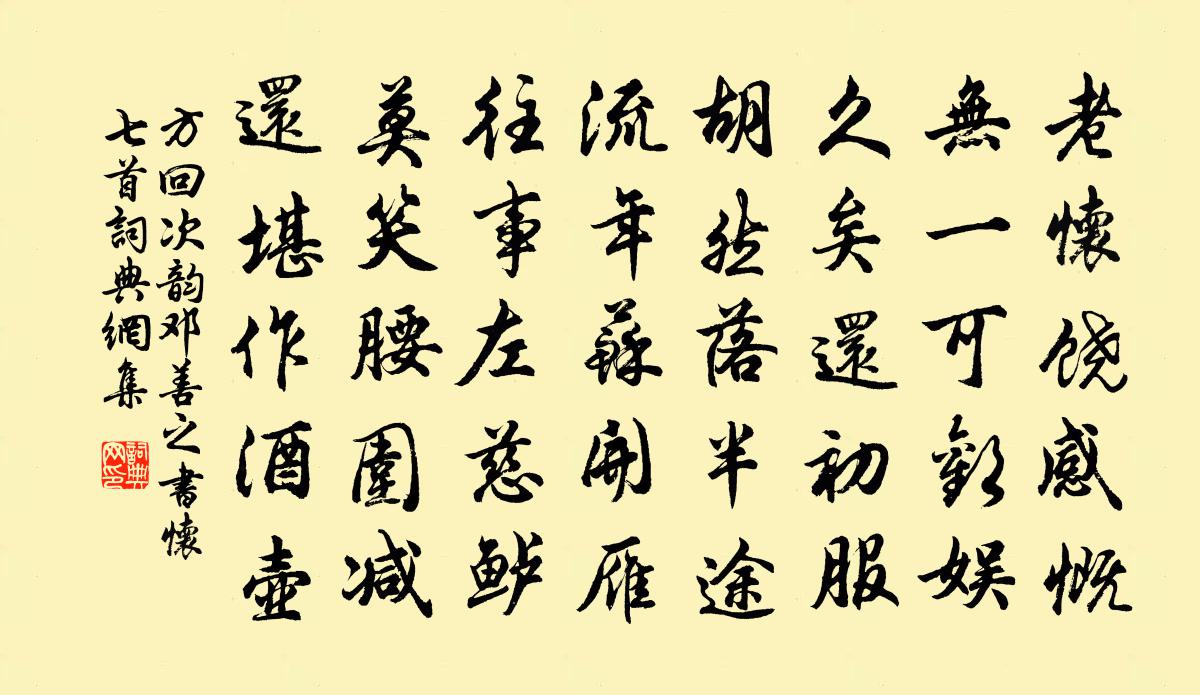 老懷饶感慨
無一可歡娱
久矣還初服
胡然落半途
流年蘇開雁
往事左慈鲈
莫笑腰圍减
還堪作酒壺
方回次韵邓善之書懷
七首詞典網集
詞典
网印